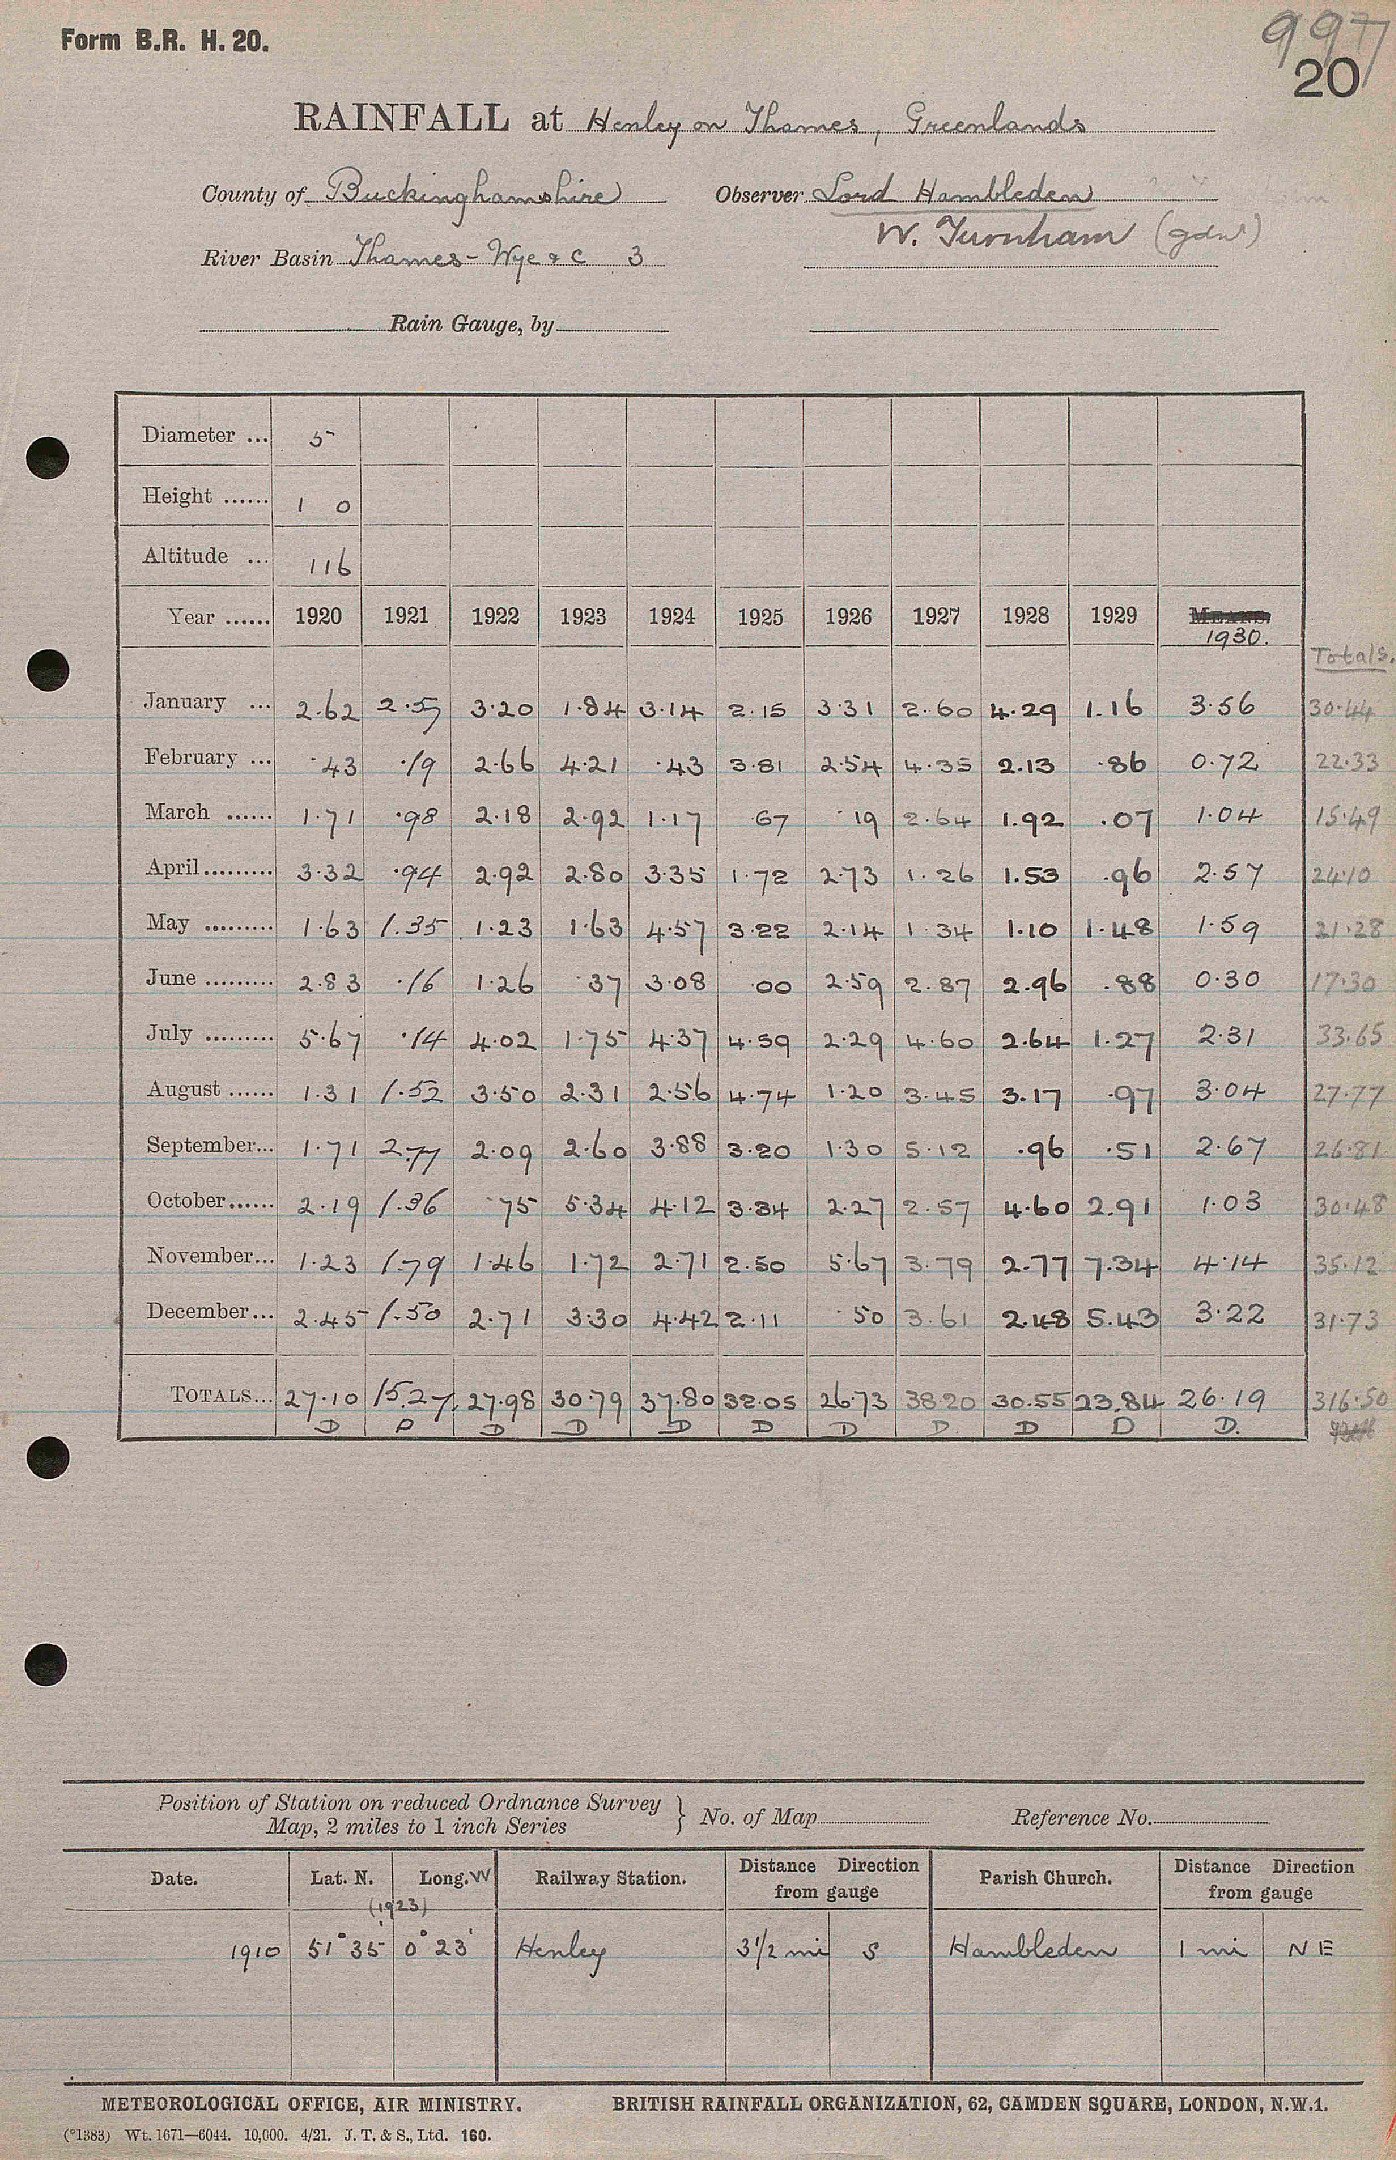 Form B.R. H. 20.
997
20
RAINFALL at Henley on Thames, Greenlands
County of Buckinghamshire Observer Lord Hambleden
W. Turnham (gdnr)
River Basin Thames - Wye & c 3
Rain Gauge, by
Diameter ... 5
Height ...... 1 0
Altitude ... 116
Year ...... 1920 1921 1922 1923 1924 1925 1926 1927 1928 1929 MEANS.
1930.
Totals.
January ... 2.62 2.57 3.20 1.84 3.14 2.15 3.31 2.60 4.29 1.16 3.56 30.44
February ... .43 .19 2.66 4.21 .43 3.81 2.54 4.35 2.13 .86 0.72 22.33
March ...... 1.71 .98 2.18 2.92 1.17 .67 .19 2.64 1.92 .07 1.04 15.49
April ......... 3.32 .94 2.92 2.80 3.35 1.72 2.73 1.26 1.53 .96 2.57 24.10
May ......... 1.63 1.35 1.23 1.63 4.57 3.22 2.14 1.34 1.10 1.48 1.59 21.28
June ......... 2.83 .16 1.26 .37 3.08 .00 2.59 2.87 2.96 .88 0.30 17.30
July ......... 5.67 .14 4.02 1.75 4.37 4.59 2.29 4.60 2.64 1.27 2.31 33.65
August ...... 1.31 1.52 3.50 2.31 2.56 4.74 1.20 3.45 3.17 .97 3.04 27.77
September... 1.71 2.77 2.09 2.60 3.88 3.20 1.30 5.12 .96 .51 2.67 26.81
October...... 2.19 1.36 .75 5.34 4.12 3.34 2.27 2.57 4.60 2.91 1.03 30.48
November... 1.23 1.79 1.46 1.72 2.71 2.50 5.67 3.79 2.77 7.34 4.14 35.12
December... 2.45 1.50 2.71 3.30 4.42 2.11 .50 3.61 2.48 5.43 3.22 31.73
TOTALS... 27.10 15.27 27.98 30.79 37.80 32.05 26.73 38.20 30.55 23.84 26.19 316.50
D D D D D D D D. D D D.
Position of Station on reduced Ordnance Survey
Map, 2 miles to 1 inch Series } No. of Map Reference No.
Date. Lat. N. Long. W Railway Station. Distance Direction from gauge Parish Church. Distance Direction from gauge
(1923)
1910 51° 35' 0° 23' Henley 3 1/2 mi S Hambleden 1 mi N E
METEOROLOGICAL OFFICE, AIR MINISTRY. BRITISH RAINFALL ORGANIZATION, 62, CAMDEN SQUARE, LONDON, N.W.1.
(*1383) Wt. 1671—6044. 10,000. 4/21. J. T. & S., Ltd. 160.